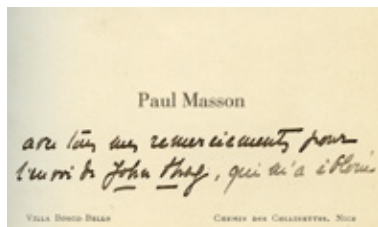 Paul Masson
avec tous mes remerciements pour
l'envoi de John Shag, qui m'a ébloui
VILLA BOSCO BELLO CHEMIN DES COLLINETTES, NICE